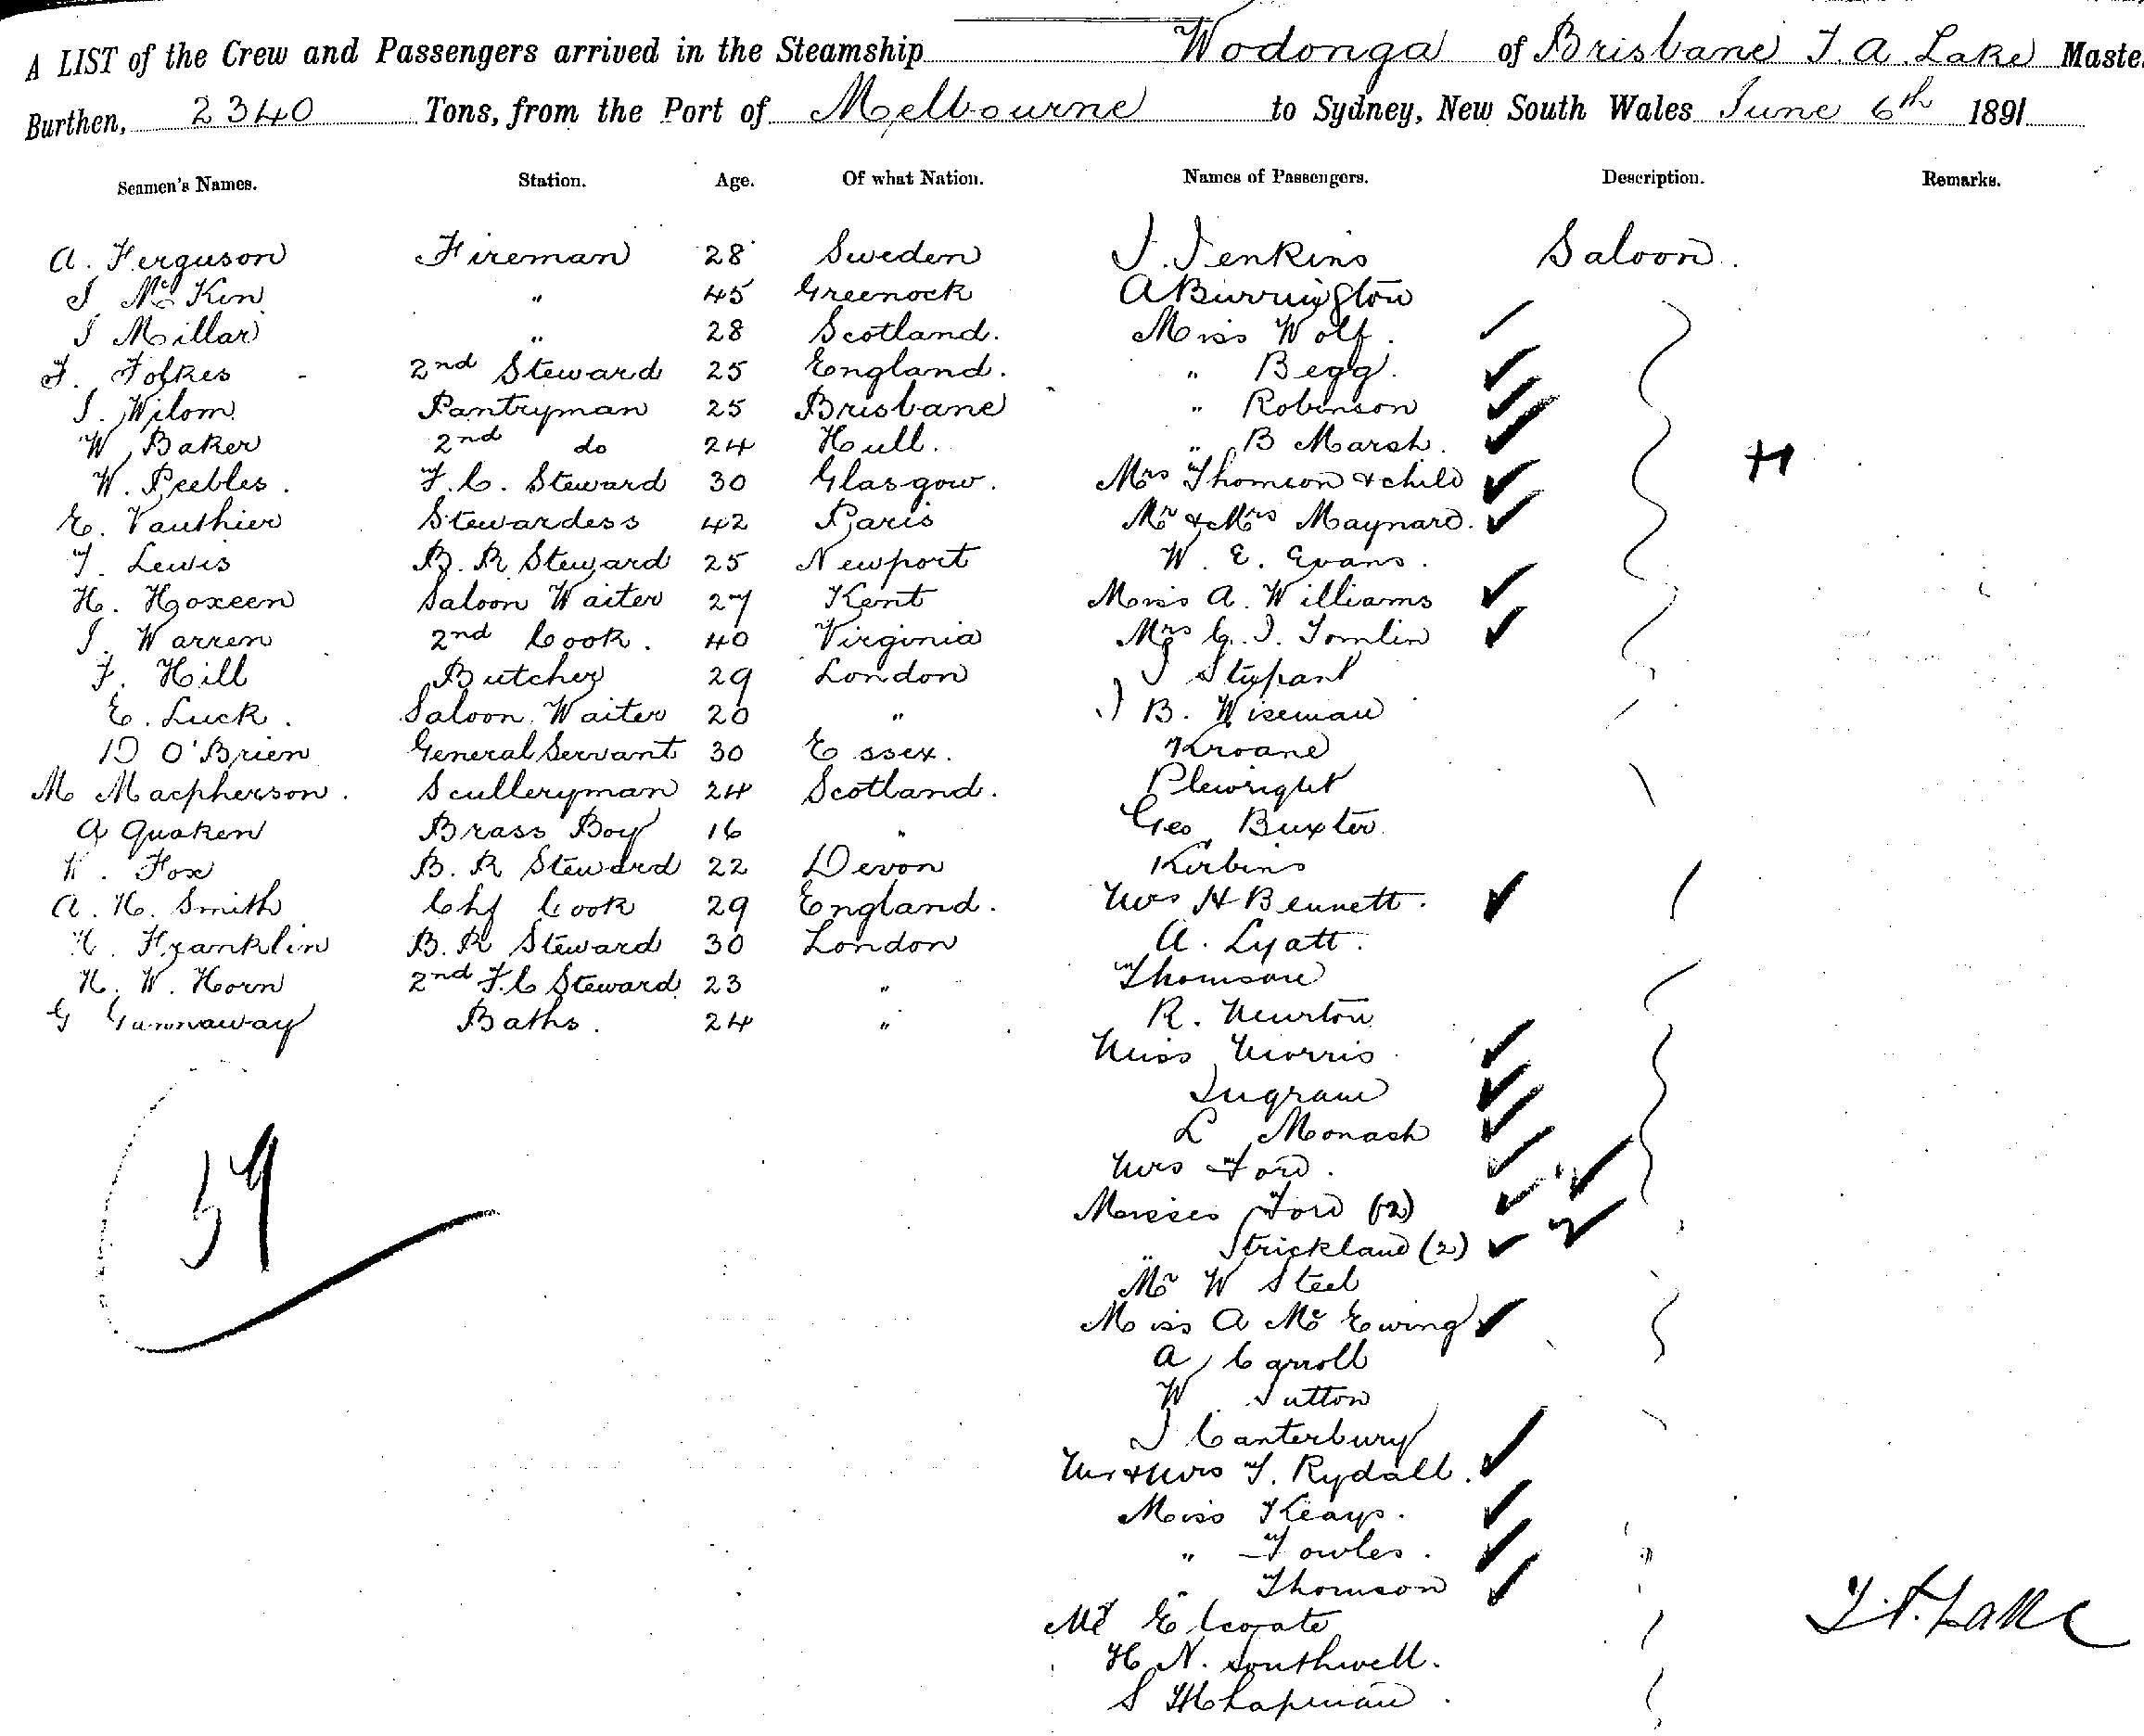 A LIST of the Crew and Passengers arrived in the Steamship Wodonga of Brisbane T. A. Lake Maste
Burthen, 2340 Tons, from the Port of Melbourne to Sydney, New South Wales June 6th 1891
Seamen's Names. Station. Age. Of what Nation. Names of Passengers. Description. Remarks.
A. Ferguson Fireman 28 Sweden J. Jenkins Saloon.
J. McKin " 45 Greenock A Burrington
J Millar " 28 Scotland. Miss Wolf.
F. Folkes 2nd Steward 25 England. " Begg.
J. Wilom Pantryman 25 Brisbane " Robinson
W Baker 2nd do 24 Hull. " B Marsh.
W. Peebles. F. C. Steward 30 Glasgow. Mrs Thomson & child
E. Vauthier Stewardess 42 Paris Mr & Mrs Maynard.
T. Lewis B. R Steward 25 Newport W. E. Evans.
H. Hoxeen Saloon Waiter 27 Kent Miss A. Williams
J. Warren 2nd Cook. 40 Virginia Mrs C. J. Tomlin
F. Hill Butcher 29 London J
E. Luck. Saloon Waiter 20 " J B. Wiseman
D O'Brien General Servant 30 Essex. Kroane
M Macpherson. Sculleryman 24 Scotland. Plewright
A Quaken Brass Boy 16 " Geo Buxter
Fox B. R Steward 22 Devon Kirbins
A. H. Smith Chf Cook 29 England. Mrs H Bennett.
H. Franklin B. R Steward 30 London A. Lyatt.
H. W. Horn 2nd F. C Steward 23 " Thomson
G Gunnaway Baths. 24 " R. Newton
Miss Morris
Ingram
L Monash
Mrs Ford.
Misses Ford (2)
" Strickland (2)
Mr W Steel
Miss A Mc Ewing
A Carroll
W Sutton
J Canterbury
Mr & Mrs T. Rydall.
Miss Keays.
" Fowles.
" Thomson
Mr E
H N. Southwell.
S Chapman.
59
T. A. Lake